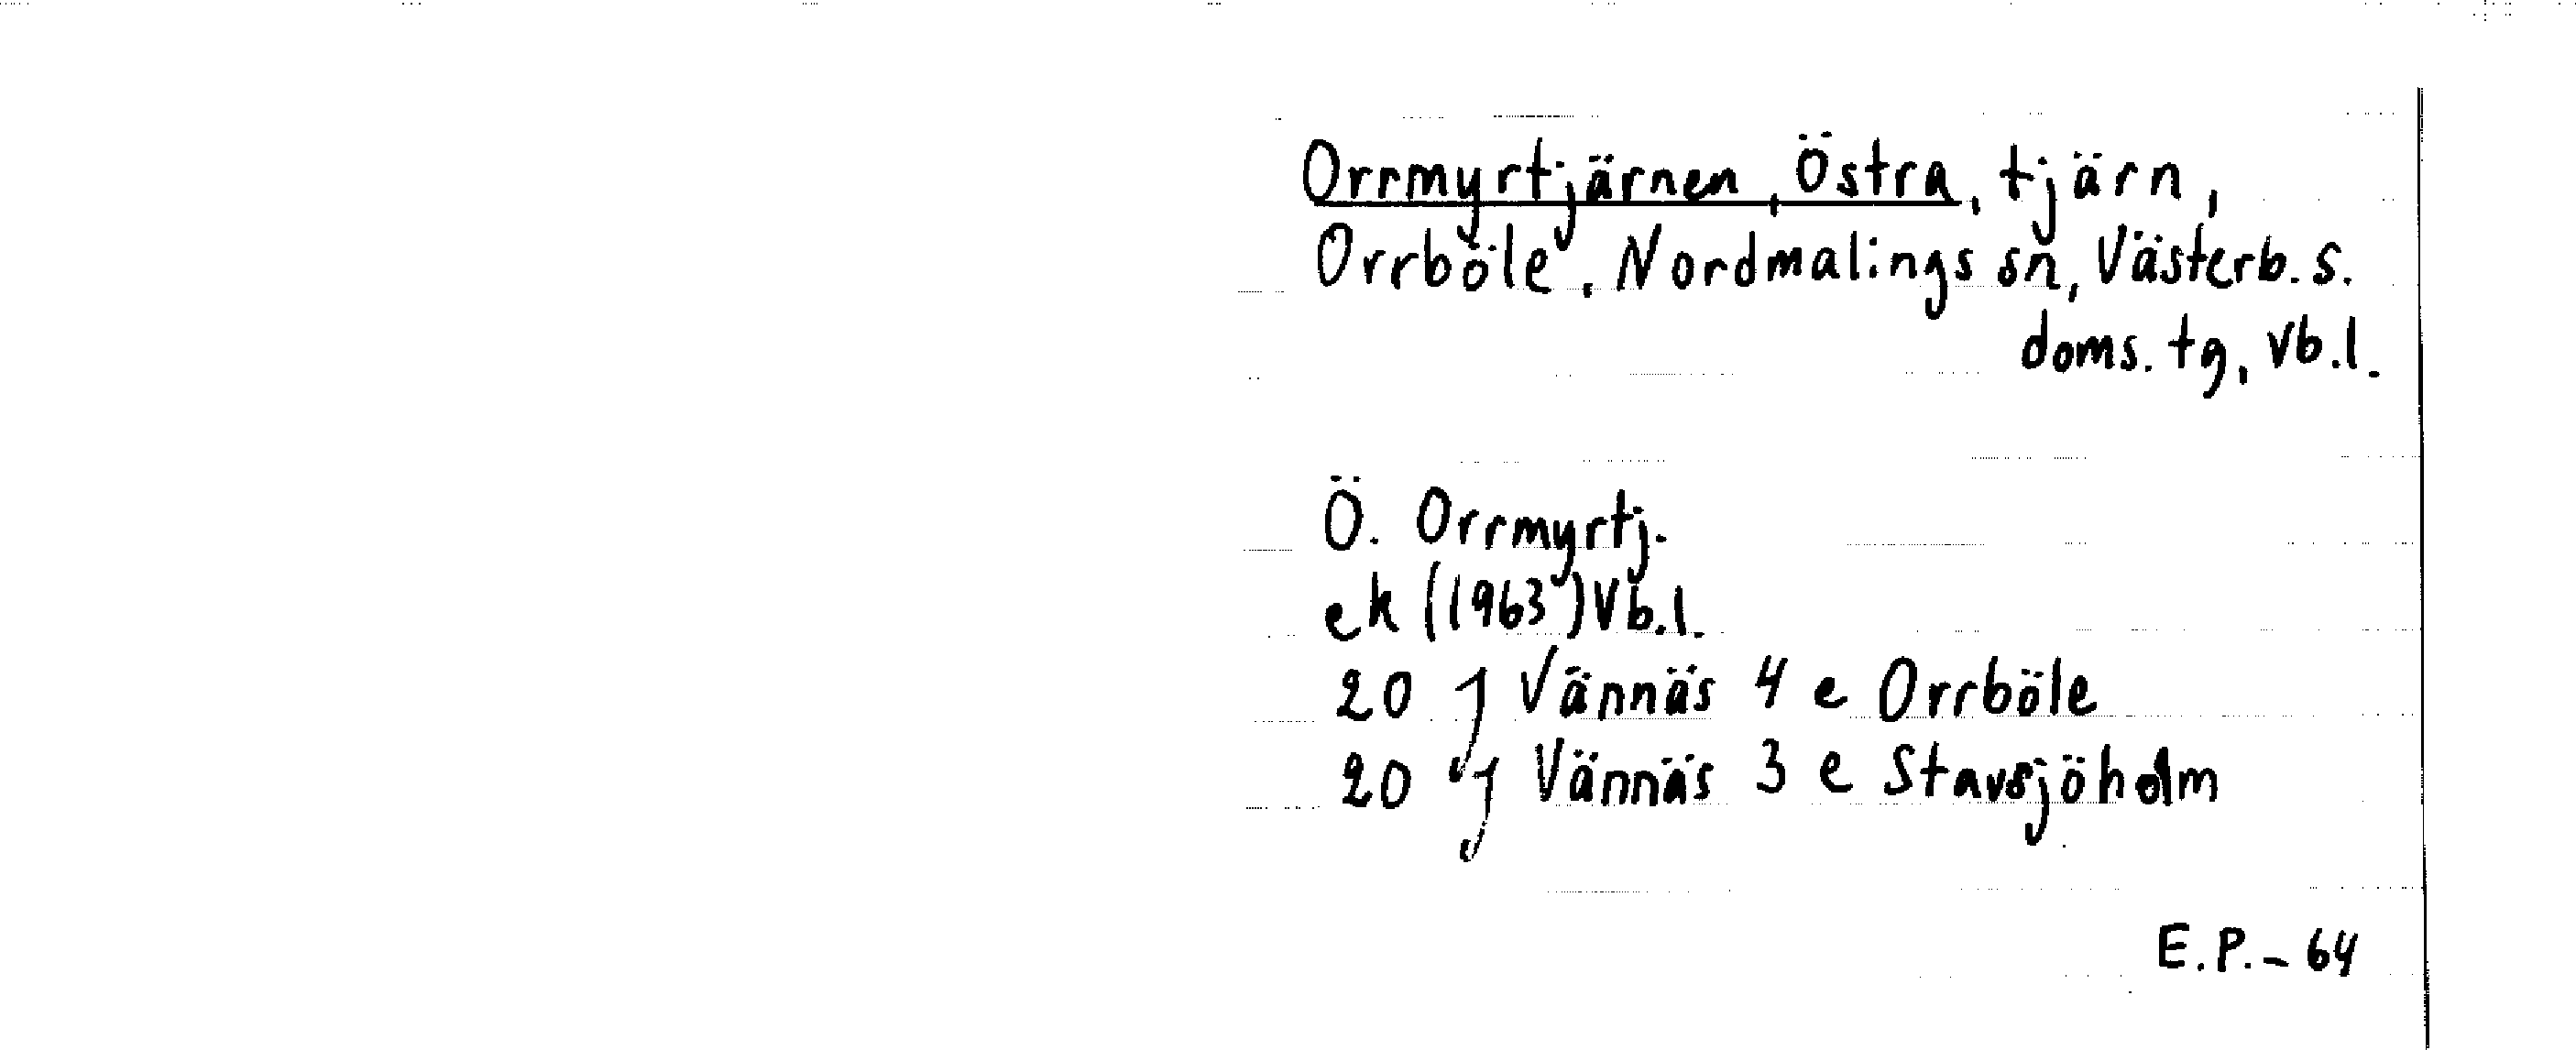 Orrmyrtjärnen, Östra, tjärn,
Orrböle, Nordmalings sn, Västerb. s.
doms. tg, Vb.l.
Ö. Orrmyrtj.
ek (1963) Vb.l.
20 J Vännäs 4 e Orrböle
20 J Vännäs 3 e Stavsjöholm
E.P. - 64